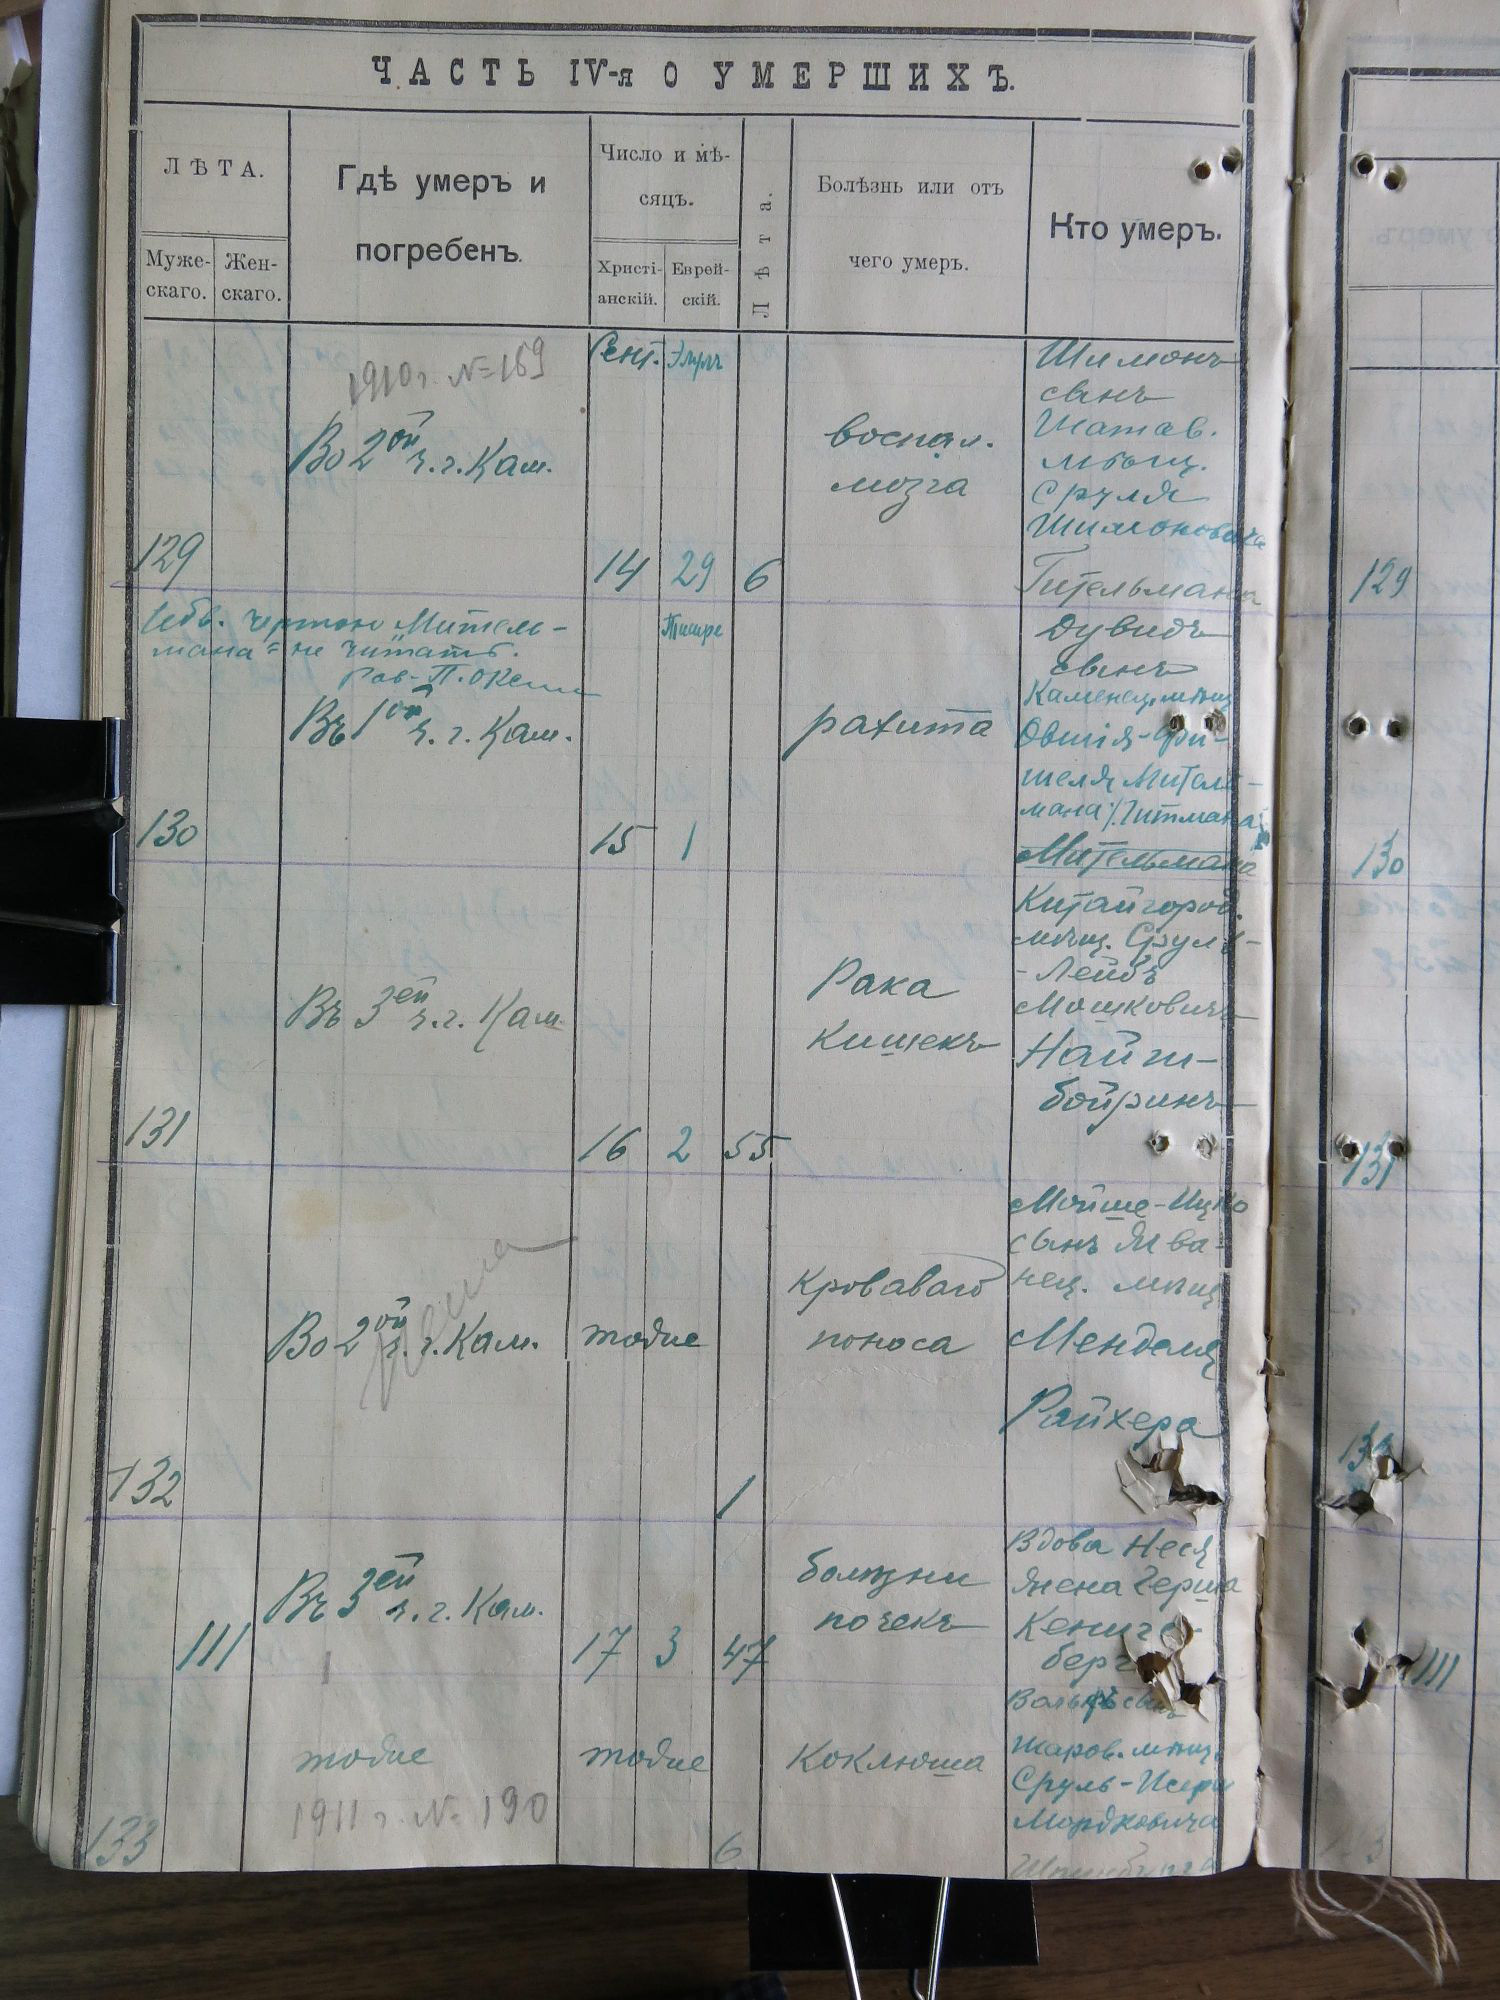 ЧАСТЬ IV-я О УМЕРШИХЪ.
ЛѢТА.
Муже-
скаго.
Жен-
скаго.
Гдѣ умеръ и
погребенъ.
Число и мѣ-
сяцъ.
Христі-
анскій.
Еврей-
скій.
Лѣта.
Болѣзнь или отъ
чего умеръ.
Кто умеръ.
129
1910 г. №=169
Во 2ой ч. г. Кам.
Сент.
Элулъ
14
29
6
воспал.
мозга
Шимонъ
сынъ
Шатав.
мѣщ.
Сруля
Шимоновича
Гительмана
129
чертою Митель-
мана = не читать.
Рав-
130
Въ 1ой ч. г. Кам.
Тишре
15
1
рахита
Дувидъ
сынъ
Каменец. мѣщ.
Овшія-Фи-
шеля Мител-
мана
Мительмана
130
131
Въ 3ей ч. г. Кам.
16
2
55
Рака
Кишекъ
Китайгород.
мѣщ. Сруль-
-Лейбъ
Мошковичъ
Найш-
бойринъ
131
132
Во 2ой ч. г. Кам.
тоже
1
Кроваваго
поноса
Мойше-Ицко
сынъ Жва-
нец. мѣщ.
Менделя
Райхера
132
111
Въ 3ей ч. г. Кам.
17
3
47
болѣзни
почекъ
Вдова Неся
жена Герша
Кениг-
берг
111
133
тоже
1911 г. № 190
тоже
6
Коклюша
жаров. мѣщ.
Сруль-
Мордковича